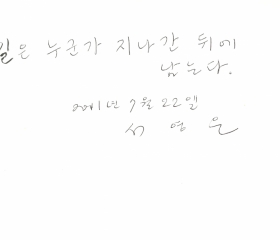 일은 누군가 지나간 뒤에
남는다.
2001년 7월 22일
서영은